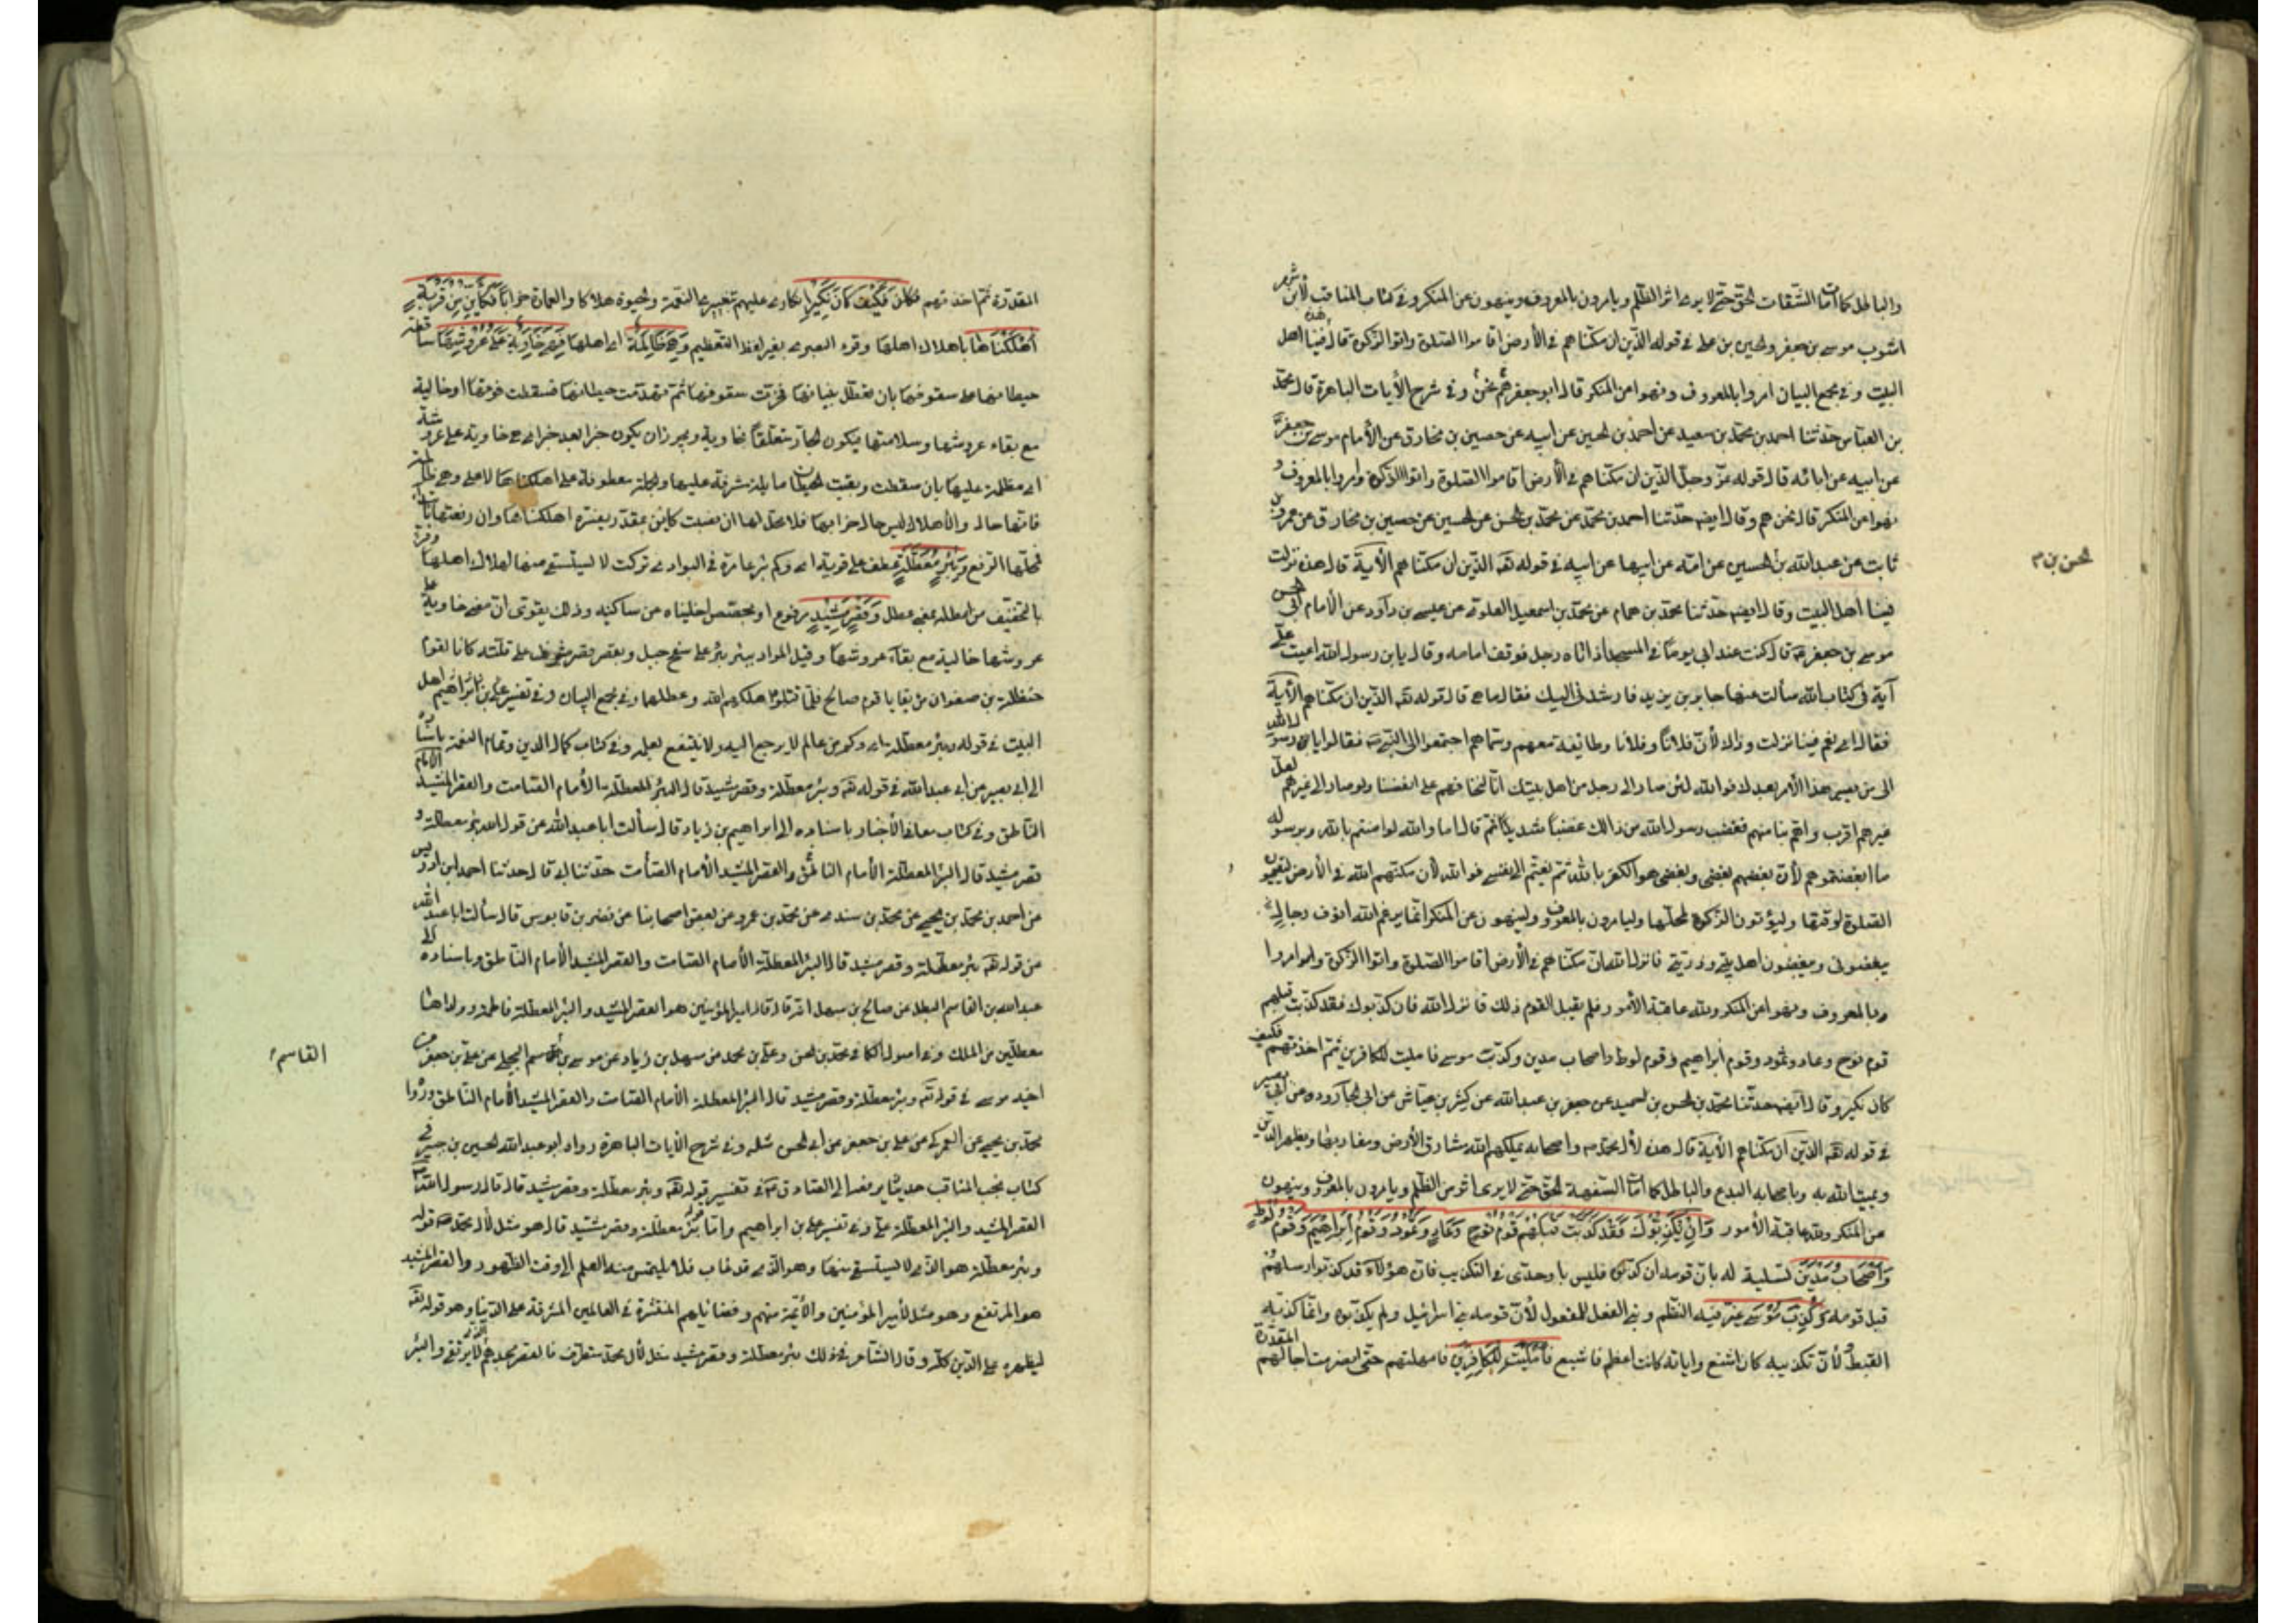 والباطل كما أمات الشقات الحق حتى لا يرى اثر الظلم ويامرون بالمعروف وينهون عن المنكر وفي كتاب المناقب لابن شهر
اشوب موسى بن جعفر والحسين بن علي في قوله الذين ان مكناهم في الأرض اقاموا الصلوة واتوا الزكوة قال هذه فينا اهل
البيت وفي مجمع البيان امروا بالمعروف ونهوا عن المنكر قال ابو جعفر نحن هم وفي شرح الأيات الباهرة قال محمد
بن العباس حدثنا احمد بن محمد بن سعيد عن احمد بن الحسين عن ابيه عن حصين بن مخارق عن الأمام موسى بن جعفر
عن ابيه عن ابائه قال قوله عز وجل الذين ان مكناهم في الأرض اقاموا الصلوة واتوا الزكوة وامروا بالمعروف و
نهوا عن المنكر قال نحن هم وقال ايضا حدثنا احمد بن محمد عن محمد بن الحسن عن الحسين عن حصين بن مخارق عن عمرو بن
ثابت عن عبدالله بن الحسين عن امه عن ابيها عن ابيه في قوله تعه الذين ان مكناهم الأية قال هذه نزلت
الحسن بن م
فينا اهل البيت وقال ايضا حدثنا محمد بن همام عن محمد بن اسمعيل العلوي عن عيسى بن داود عن الأمام ابي الحسن
موسى بن جعفر قال كنت عند ابي يوما في المسجد اذ اتاه رجل فوقف امامه وقال يابن رسول الله اعيت علي
آية في كتاب الله سألت عنها جابر بن يزيد فارشدني اليك فقال ما هي قال قوله تعه الذين ان مكناهم الأية
فقال ابي نعم فينا نزلت وذاك لأن فلانا وفلانا وطائفة معهم وسماهم اجتمعوا الى النبي فقالوا يا رسول الله
الى من يصير هذا الأمر بعدك فوالله لئن صار الى رجل من اهل بيتك انا لنخافهم على انفسنا ولو صار الى غيرهم لعل
غيرهم اقرب وارحم بنا منهم فغضب رسول الله من ذالك غضبا شديدا ثم قال اما والله لو امنتم بالله وبرسوله
ما ابغضتموهم لأن بغضهم بغضي وبغضي هو الكفر بالله ثم نعيتم الى نفسي فوالله لان مكنهم الله في الأرض ليقيموا
الصلوة لوقتها وليؤتون الزكوة لمحلها وليامرون بالمعروف ولينهون عن المنكر انما يرغم الله انوف رجال
يبغضوني ويبغضون اهل بيتي وذريتي فانزل الله ان مكناهم في الأرض اقاموا الصلوة واتوا الزكوة وامروا
بالمعروف ونهوا عن المنكر ولله عاقبة الأمور فلم يقبل القوم ذلك فانزل الله فان كذبوك فقد كذبت قبلهم
قوم نوح وعاد وثمود وقوم ابراهيم وقوم لوط واصحاب مدين وكذب موسى فامليت للكافرين ثم اخذتهم فكيف
كان نكير وقال ايضا حدثنا محمد بن الحسن بن حميد عن جعفر بن عبدالله عن كثير بن عياش عن ابي الجارود عن ابي جعفر
في قوله تعه الذين ان مكناهم الأية قال هذه لأل محمد واصحابه يملكهم الله مشارق الأرض ومغاربها ويظهر الدين
ويميت الله به وباصحابه البدع والباطل كما امات السفهة الحق حتى لا يرى اثر من الظلم ويامرون بالمعروف وينهون
عن المنكر ولله عاقبة الأمور وَاِنْ يُكَذِّبُوكَ فَقَدْ كَذَّبَتْ قَبْلَهُمْ قَوْمُ نُوحٍ وَعَادٍ وَثَمُودَ وَقَوْمُ اِبْرَاهِيمَ وَقَوْمُ لُوطٍ
وَاَصْحَابُ مَدْيَنَ تسلية له بان قومه ان كذبوه فليس باوحدى في التكذيب فان هؤلاء قد كذبوا رسلهم
قبل قومه وَكُذِّبَ مُوسَى غير فيه النظم وبني الفعل للمفعول لأن قومه بني اسرائيل ولم يكذبوه وانما كذبه
القبط ولأن تكذيبه كان اشنع واياته كانت اعظم فاشيع فَاَمْلَيْتُ لِلْكَافِرِينَ فامهلتهم حتى انصرمت اجالهم المقدرة
المقدرة ثم اخذتهم فَكَيْفَ كَانَ نَكِيرِ انكاري عليهم بتغيير النعمة والحيوة هلاكا والعمارة خرابا فَكَأَيِّنْ مِنْ قَرْيَةٍ
اَهْلَكْنَاهَا باهلاك اهلها وقرء البصري بغير لفظ التعظيم وَهِيَ ظَالِمَةٌ اي اهلها فَهِيَ خَاوِيَةٌ عَلَى عُرُوشِهَا ساقطة
حيطانها على سقوفها بان تعطل بنيانها فخرت سقوفها ثم تهدمت حيطانها فسقطت فوقها او خالية
مع بقاء عروشها وسلامتها فيكون الجار متعلقا بخاوية ويجوز ان يكون خبرا بعد خبر اي هي خاوية على عروشها
اي مطلة عليها بان سقطت وبقيت الحيطان مايلة مشرفة عليها والجملة معطوفة على اهلكناها لا على وهي ظالمة
فانها حال والأهلاك ليس حال خرابها فلا محل لها ان نصبت كاين بمقدر يفسره اهلكناها وان رفعته بالابتداء
فمحلها الرفع وَبِئْرٍ مُعَطَّلَةٍ عطف على قرية اي وكم بئر عامرة في البوادي تركت لا يستسقى منها لهلاك اهلها وقرئ
بالتخفيف من اعطله بمعنى عطله وَقَصْرٍ مَشِيدٍ مرفوع او مجصص اخليناه عن ساكنيه وذلك يقوى ان معنى خاوية على
عروشها خالية مع بقاء عروشها وقيل المراد ببئر بئر على سفح جبل وبقصر قصر مشرف على قلته كانا لقوم
حنظلة بن صفوان من بقايا قوم صالح فلما قتلوه اهلكهم الله وعطلهما وفي مجمع البيان وفي تفسير علي بن ابراهيم اهل
البيت في قوله وبئر معطلة اي وكم من عالم لا يرجع اليه ولا ينتفع بعلمه وفي كتاب كمال الدين وتمام النعمة باسناده
الى ابي بصير عن ابي عبدالله في قوله تعه وبئر معطلة وقصر مشيد قال البئر المعطلة الأمام الصامت والقصر المشيد الامام
الناطق وفي كتاب معاني الأخبار باسناده الى ابراهيم بن زياد قال سألت ابا عبدالله عن قول الله بئر معطلة و
قصر مشيد قال البئر المعطلة الأمام الصامت والقصر المشيد الأمام الناطق حدثنا ابي قال حدثنا احمد ابن ادريس
عن احمد بن محمد بن يحيى عن محمد بن سندي عن محمد بن عمرو عن بعض اصحابنا عن نصر بن قابوس قال سألت ابا عبد الله
عن قوله تعه بئر معطلة وقصر مشيد قال البئر المعطلة الأمام الصامت والقصر المشيد الأمام الناطق وباسناده الى
عبدالله بن القاسم البطل عن صالح بن سهل انه قال قال امير المؤمنين هو القصر المشيد والبئر المعطلة فاطمة وولداها
معطلين من الملك وفي اصول الكافي محمد بن الحسن وعلي بن محمد عن سهل بن زياد عن موسى بن القاسم البجلي عن علي بن جعفر عن
القاسم
اخيه موسى في قوله تعه وبئر معطلة وقصر مشيد قال البئر المعطلة الأمام الصامت والقصر المشيد الأمام الناطق ورواه
محمد بن يحيى عن العمركي عن علي بن جعفر عن ابي الحسن مثله وفي شرح الأيات الباهرة رواه ابو عبدالله الحسين بن جبير في
كتاب نخب المناقب حديثا يرفعه الى الصادق في تفسير قوله تعه وبئر معطلة وقصر مشيد قال قال رسول الله
القصر المشيد والبئر المعطلة علي وفي تفسير علي بن ابراهيم واما قوله بئر معطلة وقصر مشيد قال هو مثل لأل محمد قوله
وبئر معطلة هو الذي لا يستسقى منها وهو الذي قد غاب فلا يقتبس منه العلم الى وقت الظهور والقصر المشيد
هو المرتفع وهو مثل لأمير المؤمنين والأئمة منهم وفضائلهم المنتشرة في العالمين المشرفة على الدنيا وهو قوله تعه
ليظهره على الدين كله وقال الشاعر في ذلك بئر معطلة وقصر مشيد مثل لأل محمد مستطرف فالقصر مجدهم الذي لا يرتقى والبئر